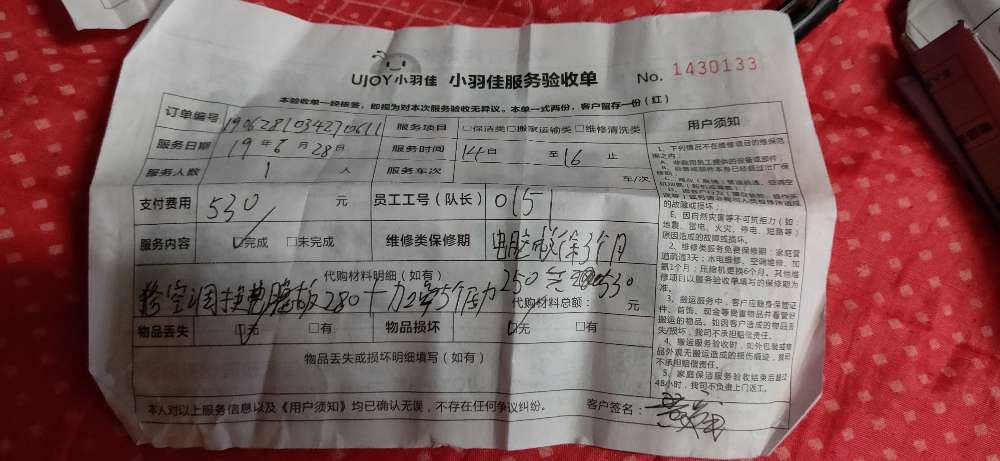 UJOY小羽佳 小羽佳服务验收单 No. 1430133
本验收单一经核签，即视为对本次服务验收无异议。本单一式两份，客户留存一份（红）
订单编号 1906281034270611 服务项目 □保洁类 □搬家运输类 □维修清洗类
服务日期 19年6月28日 服务时间 14 至 16 止
服务人数 1 人 服务车次 车/次
支付费用 530 元 员工工号（队长） 0151
服务内容 ☑完成 □未完成 维修类保修期 电脑板保3个月
代购材料明细（如有）
修空调换电脑板280 250 530
代购材料总额： 元
物品丢失 ☑无 □有 物品损坏 ☑无 □有
物品丢失或损坏明细填写（如有）
本人对以上服务信息以及《用户须知》均已确认无误，不存在任何争议纠纷。 客户签名：
用户须知
1、下列情况不在维修项目的维保范
围之内：
A、非我司员工提供的设备或部件；
的故障或损坏；
E、因自然灾害等不可抗拒力（如：
地震、雷电、火灾、停电、短路等）
原因造成的故障或损坏。
2、维修类服务免费保修期：家庭管
道疏通3天；水电维修、空调维修、加
氨1个月；压缩机更换6个月。其他维
修项目以服务验收单填写的保修期为
准。
3、搬运服务中，客户应随身保管证
件、首饰、现金等贵重物品并看管好
搬运的物品。如因客户造成的物品丢
失/损坏，我司不承担赔偿责任。
4、搬运服务验收时，如外包装或物
品外观无搬运造成的损伤痕迹，我司
不承担赔偿责任。
5、家庭保洁服务验收结束后超过
48小时，我司不负责上门返工。